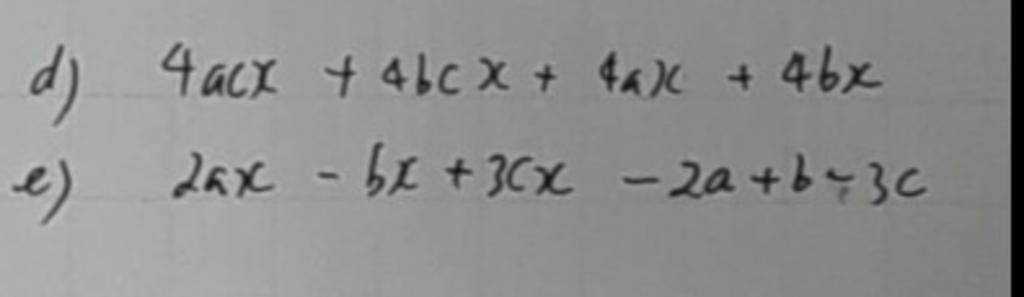 d) 4acx + 4bcx + 4ax + 4bx
e) 2ax - bx + 3cx - 2a + b - 3c